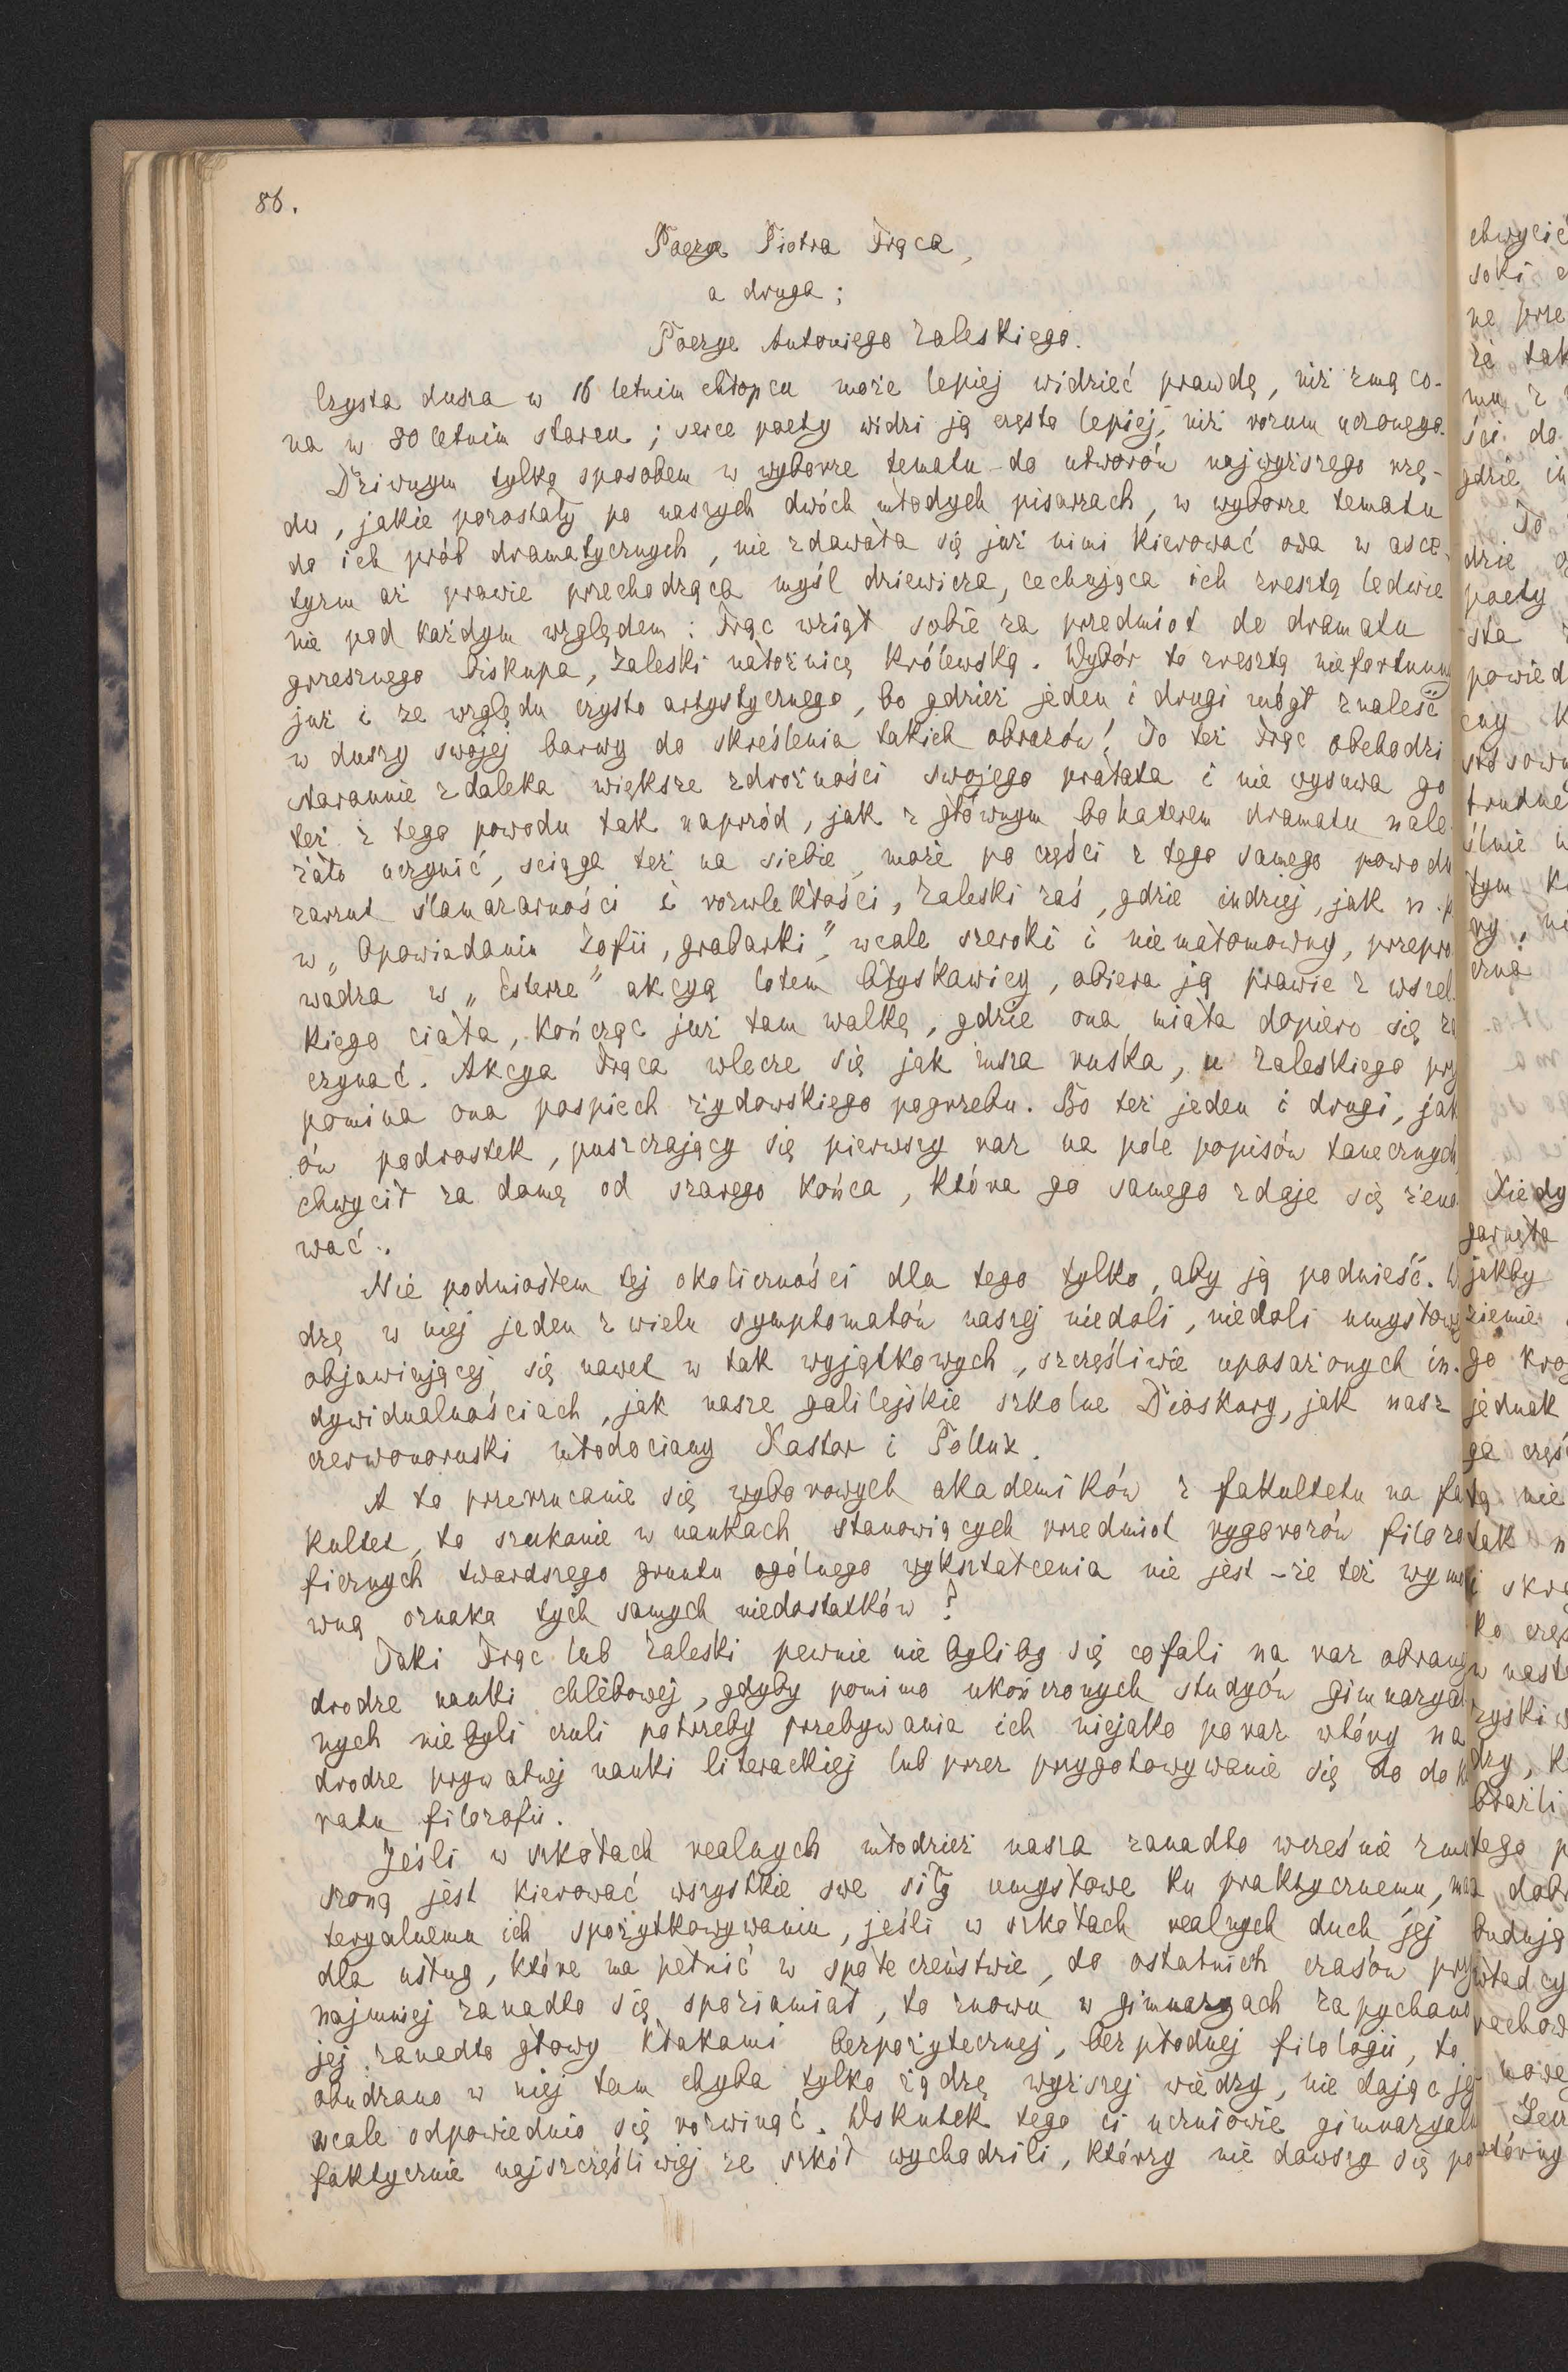 86.
Poezye Piotra Frąca,
a druga:
Poezye Antoniego Zaleskiego.
Czysta dusza w 16 letnim chłopcu może lepiej widzieć prawdę, niż zmąco-
na w 80 letnim starcu; serce poety widzi ją często lepiej, niż rozum uczonego.
Dziwnym tylko sposobem w wyborze tematu do utworów najwyższego rzę-
du, jakie pozostały po naszych dwóch młodych pisarzach, w wyborze tematu
do ich prób dramatycznych, nie zdawała się już nimi kierować owa w asce-
tyzm aż prawie przechodząca myśl dziewicza, cechująca ich zresztą ledwie
nie pod każdym względem: Frąc wziął sobie za przedmiot do dramatu
grzesznego biskupa, Zaleski nałożnicę królewską. Wybór to zresztą niefortunny
już i ze względu czysto artystycznego, bo gdzież jeden i drugi mógł znaleść
w duszy swojej barwy do skreślenia takich obrazów! To też Frąc obchodzi
starannie zdaleka większe zdrożności swojego prałata i nie wysuwa go
też z tego powodu tak naprzód, jak z głównym bohaterem dramatu nale-
żało uczynić, sciąga też na siebie, może po części z tego samego powodu
zarzut ślamazarności i rozwlekłości, Zaleski zaś, gdzie indziej, jak n. p
w „Opowiadaniu Zofii, grabarki", wcale szeroki i niemałomowny, przepro
wadza w „Esterze" akcyą lotem błyskawicy, obiera ją prawie z wszel-
kiego ciała, kończąc już tam walkę, gdzie ona miała dopiero się za
czynać. Akcya Frąca wlecze się jak msza ruska, u Zaleskiego przy
pomina ona pospiech żydowskiego pogrzebu. Bo też jeden i drugi, jak
ów podrostek, puszczający się pierwszy raz na pole popisów tanecznych,
chwycił za damę od szarego końca, która go samego zdaje się żeno
wać.
Nie podniosłem tej okoliczności dla tego tylko, aby ją podnieść. Wi
dzę w niej jeden z wielu symptomatów naszej niedoli, niedoli umysłowej
objawiającej się nawet w tak wyjątkowych, szczęśliwie uposażonych in-
dywidualnościach, jak nasze galilejskie szkolne Dioskury, jak nasz
czerwonoruski młodociany Kastor i Pollux.
A to przerzucanie się wyborowych akademików z fakultetu na fa
kultet, to szukanie w naukach stanowiących przedmiot rygorozów filozo
ficznych twardszego gruntu ogólnego wykształcenia nie jest-że też wymo
wną oznaka tych samych niedostatków?
Taki Frąc lub Zaleski pewnie nie byliby się cofali na raz obranej
drodze nauki chlebowej, gdyby pomimo ukończonych studyów gimnazyal
nych nie byli czuli potrzeby przebywania ich niejako po raz wtóry na
drodze prywatnej nauki literackiej lub przez przygotowywanie się do dokto
ratu filozofii.
Jeśli w szkołach realnych młodzież nasza zanadto wcześnie zmu
szoną jest kierować wszystkie swe siły umysłowe ku praktycznemu, ma
teryalnemu ich spożytkowywaniu, jeśli w szkołach realnych duch jej
dla usług, które ma pełnić w społeczeństwie, do ostatnich czasów przy
najmniej zanadto się spoziamiał, to znowu w gimnazyach zapychano
jej zanadto głowy kłakami bezpożytecznej, bezpłodnej filologii, to
obudzano w niej tam chyba tylko żądzę wyższej wiedzy, nie dając jej
wcale odpowiednio się rozwinąć. Wskutek tego ci uczniowie gimnazyalni
faktycznie najszczęśliwiej ze szkół wychodzili, którzy nie dawszy się po